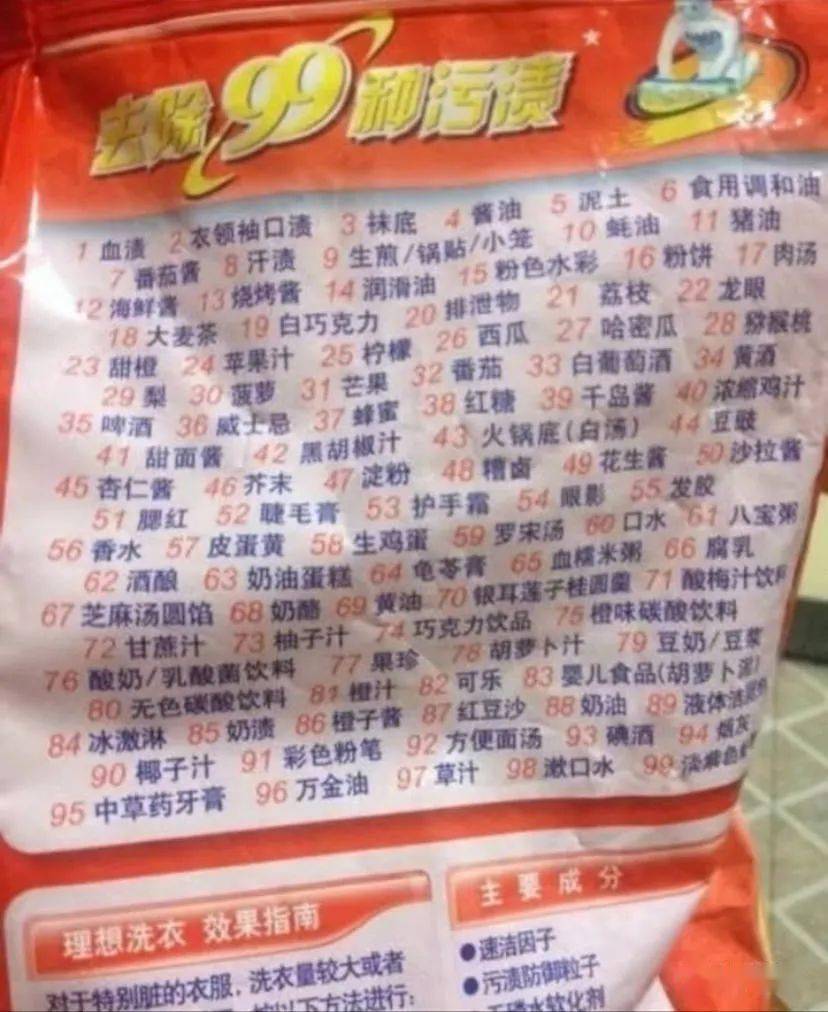 去除99种污渍
1 血渍 2 衣领袖口渍 3 袜底 4 酱油 5 泥土 6 食用调和油
7 番茄酱 8 汗渍 9 生煎/锅贴/小笼 10 蚝油 11 猪油
12 海鲜酱 13 烧烤酱 14 润滑油 15 粉色水彩 16 粉饼 17 肉汤
18 大麦茶 19 白巧克力 20 排泄物 21 荔枝 22 龙眼
23 甜橙 24 苹果汁 25 柠檬 26 西瓜 27 哈密瓜 28 猕猴桃
29 梨 30 菠萝 31 芒果 32 番茄 33 白葡萄酒 34 黄酒
35 啤酒 36 威士忌 37 蜂蜜 38 红糖 39 千岛酱 40 浓缩鸡汁
41 甜面酱 42 黑胡椒汁 43 火锅底(白汤) 44 豆豉
45 杏仁酱 46 芥末 47 淀粉 48 糟卤 49 花生酱 50 沙拉酱
51 腮红 52 睫毛膏 53 护手霜 54 眼影 55 发胶
56 香水 57 皮蛋黄 58 生鸡蛋 59 罗宋汤 60 口水 61 八宝粥
62 酒酿 63 奶油蛋糕 64 龟苓膏 65 血糯米粥 66 腐乳
67 芝麻汤圆馅 68 奶酪 69 黄油 70 银耳莲子桂圆羹 71 酸梅汁饮料
72 甘蔗汁 73 柚子汁 74 巧克力饮品 75 橙味碳酸饮料
76 酸奶/乳酸菌饮料 77 果珍 78 胡萝卜汁 79 豆奶/豆浆
80 无色碳酸饮料 81 橙汁 82 可乐 83 婴儿食品(胡萝卜泥)
84 冰激淋 85 奶渍 86 橙子酱 87 红豆沙 88 奶油 89 液体洁
90 椰子汁 91 彩色粉笔 92 方便面汤 93 碘酒 94 烟灰
95 中草药牙膏 96 万金油 97 草汁 98 漱口水 99
理想洗衣 效果指南
对于特别脏的衣服，洗衣量较大或者
按以下方法进行：
主要成分
●速洁因子
●污渍防御粒子
水软化剂